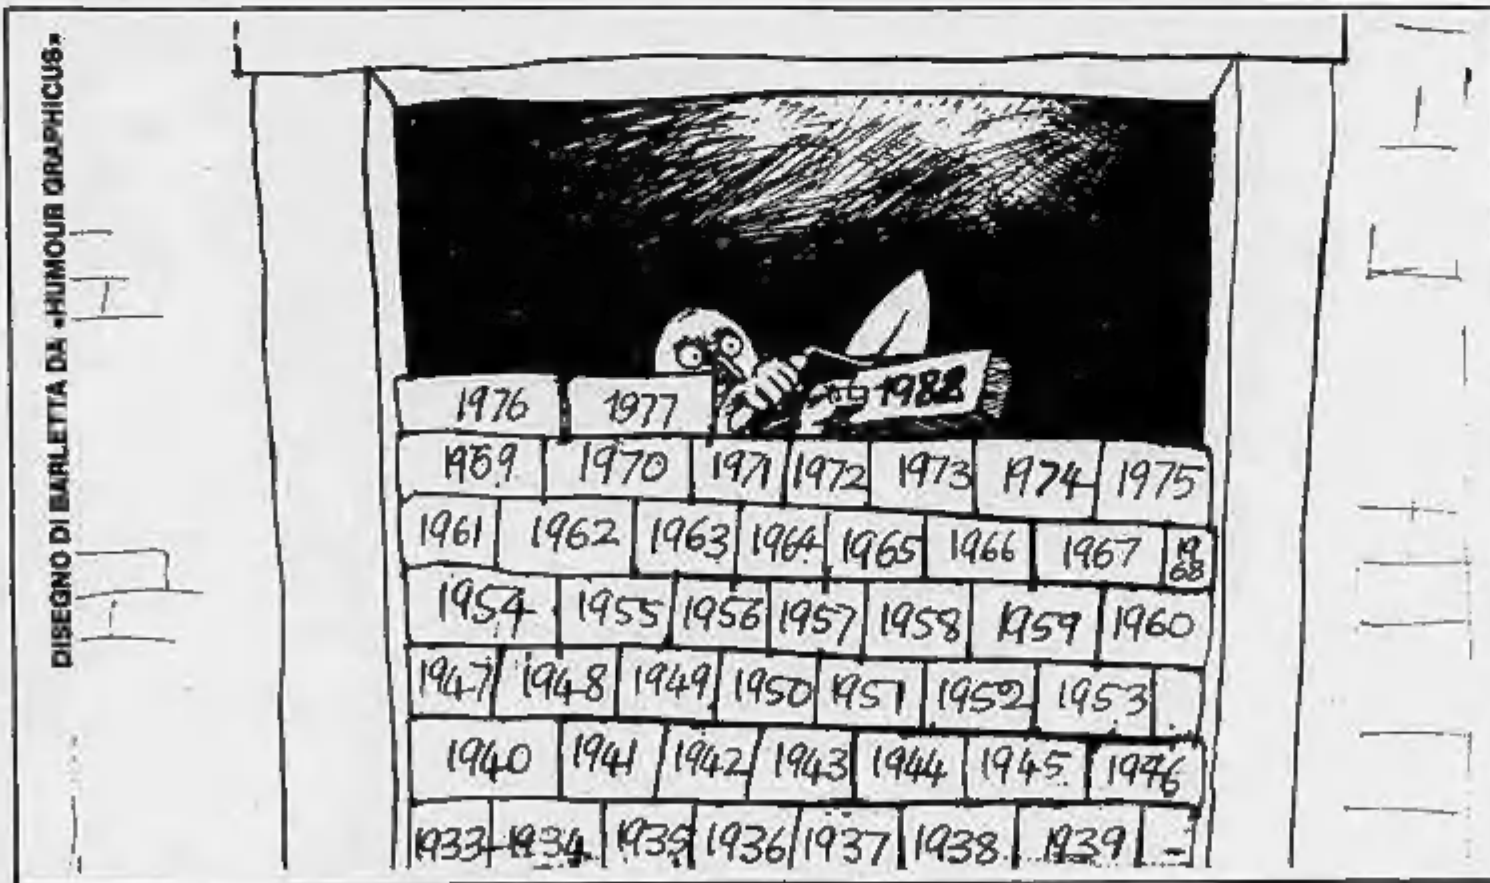 DISEGNO DI BARLETTA DA «HUMOUR GRAPHICUS»
1982
1976 1977
1969 1970 1971 1972 1973 1974 1975
1961 1962 1963 1964 1965 1966 1967 1968
1954 1955 1956 1957 1958 1959 1960
1947 1948 1949 1950 1951 1952 1953
1940 1941 1942 1943 1944 1945 1946
1933 1934 1935 1936 1937 1938 1939 -